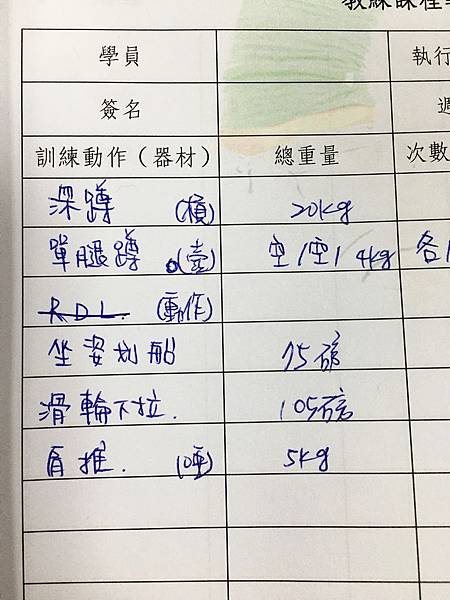 教練課程
學員 執行
簽名 週
訓練動作（器材） 總重量 次數
深蹲 (槓) 20kg
單腿蹲 (壺) 空/空/4kg 各
RDL. (動作)
坐姿划船 75磅
滑輪下拉. 105磅
肩推. (啞) 5kg